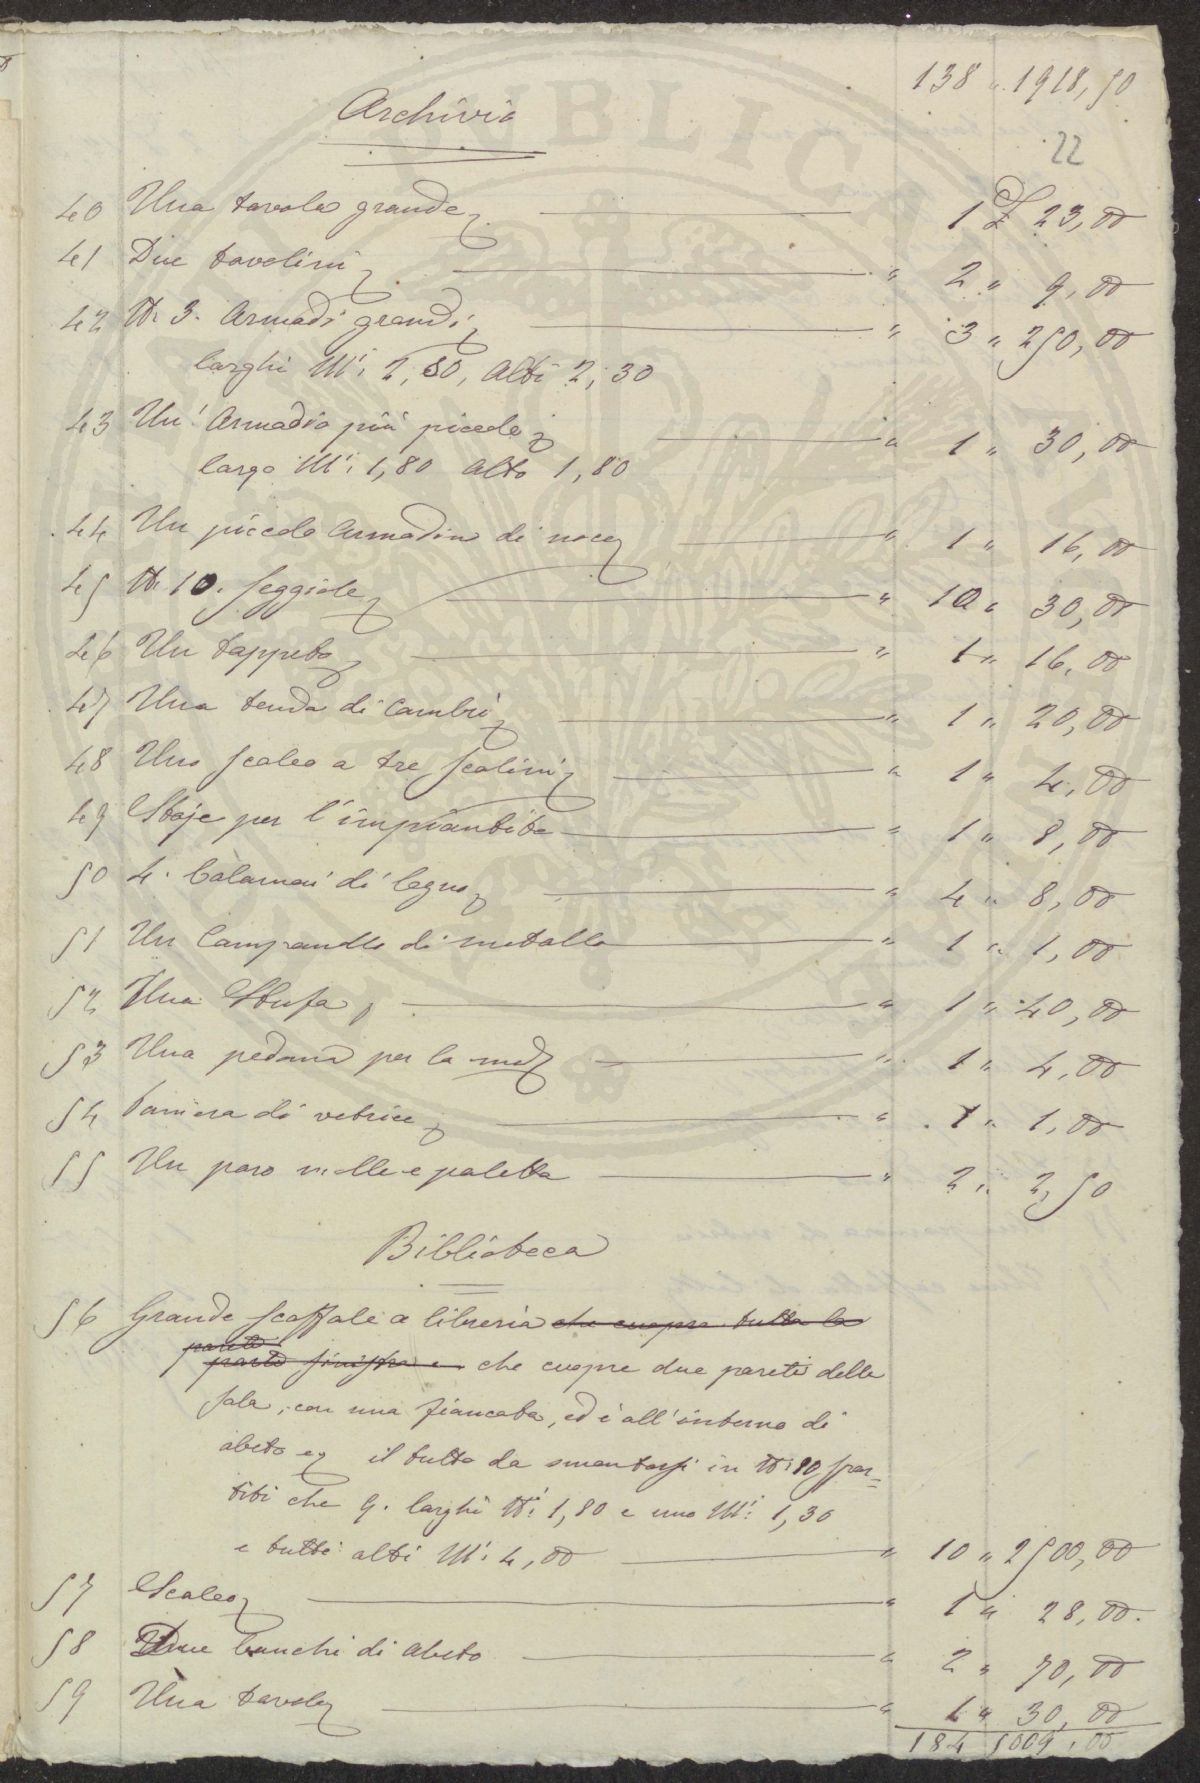 138 " 1918,50
Archivio
22
40 Una tavola grande 1 £ 23,00
41 Due tavolini " 2 " 9,00
42 N. 3. Armadi grandi " 3 " 250,00
larghi M: 2,80, alti 2,30
43 Un' Armadio più piccolo " 1 " 30,00
largo M: 1,80 alto 1,80
44 Un piccolo Armadino di noce " 1 " 16,00
45 N. 10. Seggiole " 10 " 30,00
46 Un tappeto " 1 " 16,00
47 Una tenda di Cambrì " 1 " 20,00
48 Uno scaleo a tre scalini " 1 " 4,00
49 Stoje per l'impiantito " 1 " 8,00
50 4. Calamai di legno " 4 " 8,00
51 Un Campanello di metallo " 1 " 1,00
52 Una Stufa " 1 " 40,00
53 Una pedana per la " 1 " 4,00
54 Paniera di vetrice " 1 " 1,00
55 Un paro molle e paletta " 2 " 2,50
Biblioteca
56 Grande scaffale a libreria che cuopre tutta la
parete
parte sinistra e che cuopre due pareti della
sala, con una fiancata, ed è all'interno di
abeto e il tutto da smontarsi in N: 10 spar=
titi che 9. larghi M: 1,80 e uno M: 1,30
e tutti alti M: 4,00 " 10 " 2500,00
57 Scaleo " 1 " 28,00.
58 Due banchi di Abeto " 2 " 70,00
59 Una tavola " 1 " 30,00
184 5009,00